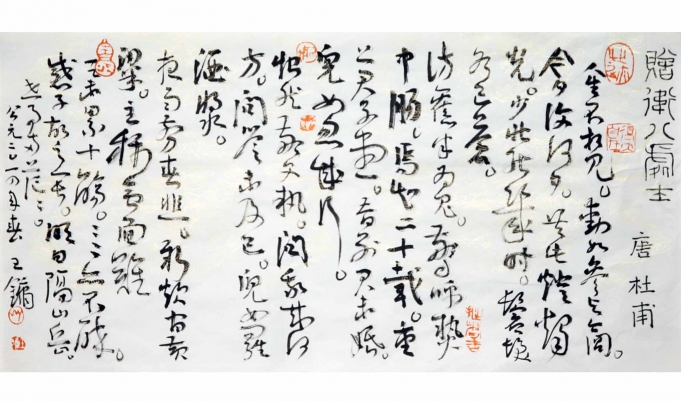 贈衛八處士
唐 杜甫
人生不相見。動如參与商。
今夕復何夕。共此燈燭
光。少壯能幾時。鬢髮
各已蒼。
訪舊半为鬼。驚呼熱
中腸。焉知二十載。重
上君子堂。昔別君未婚。
兒女忽成行。
怡然敬父執。問我來何
方。問答未及已。兒女羅
酒漿。
夜雨剪春韭。新炊間黃
粱。主稱會面難
一舉累十觴。々々亦不醉。
感子故意長。明日隔山岳。
世事兩茫々。
公元二〇一 年春 王鏞